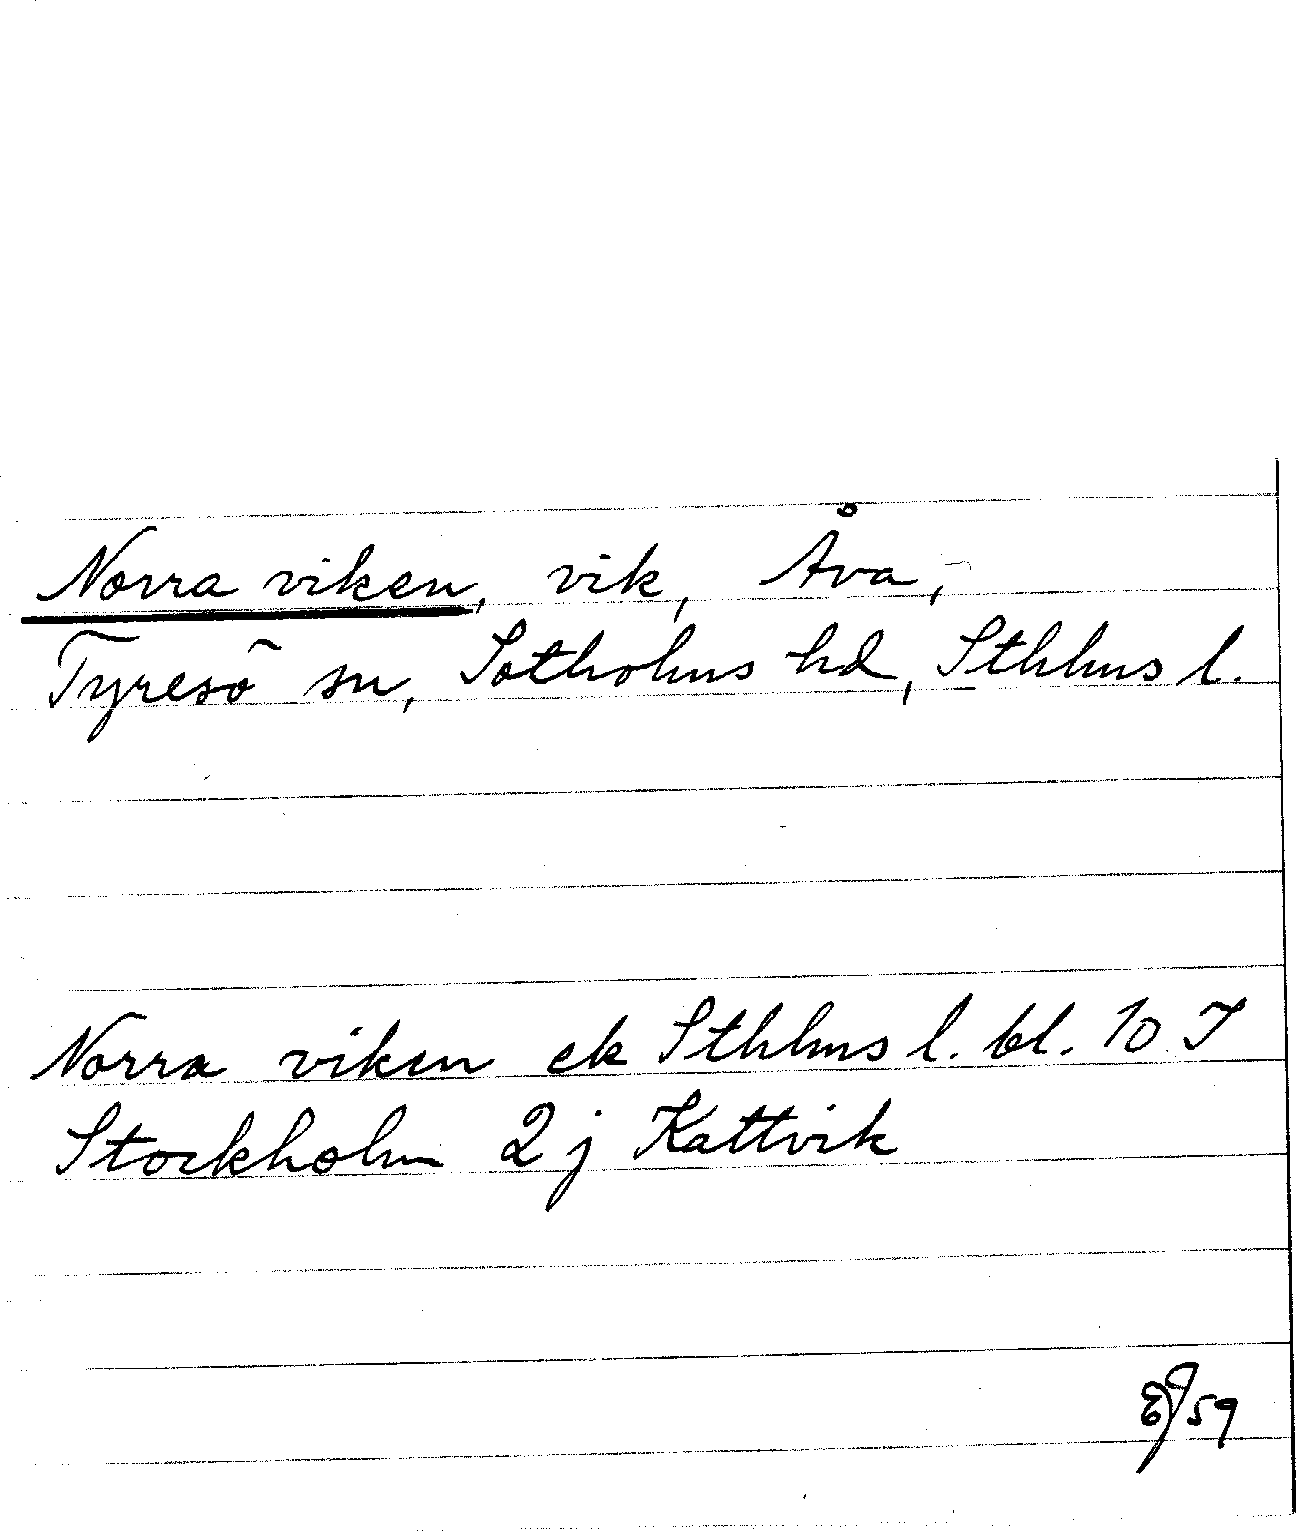 Norra viken, vik, Åva,
Tyresö sn, Sotholms hd, Sthlms l.
Norra viken ek Sthlms l. bl. 10 I
Stockholm 2 j Kattvik
59